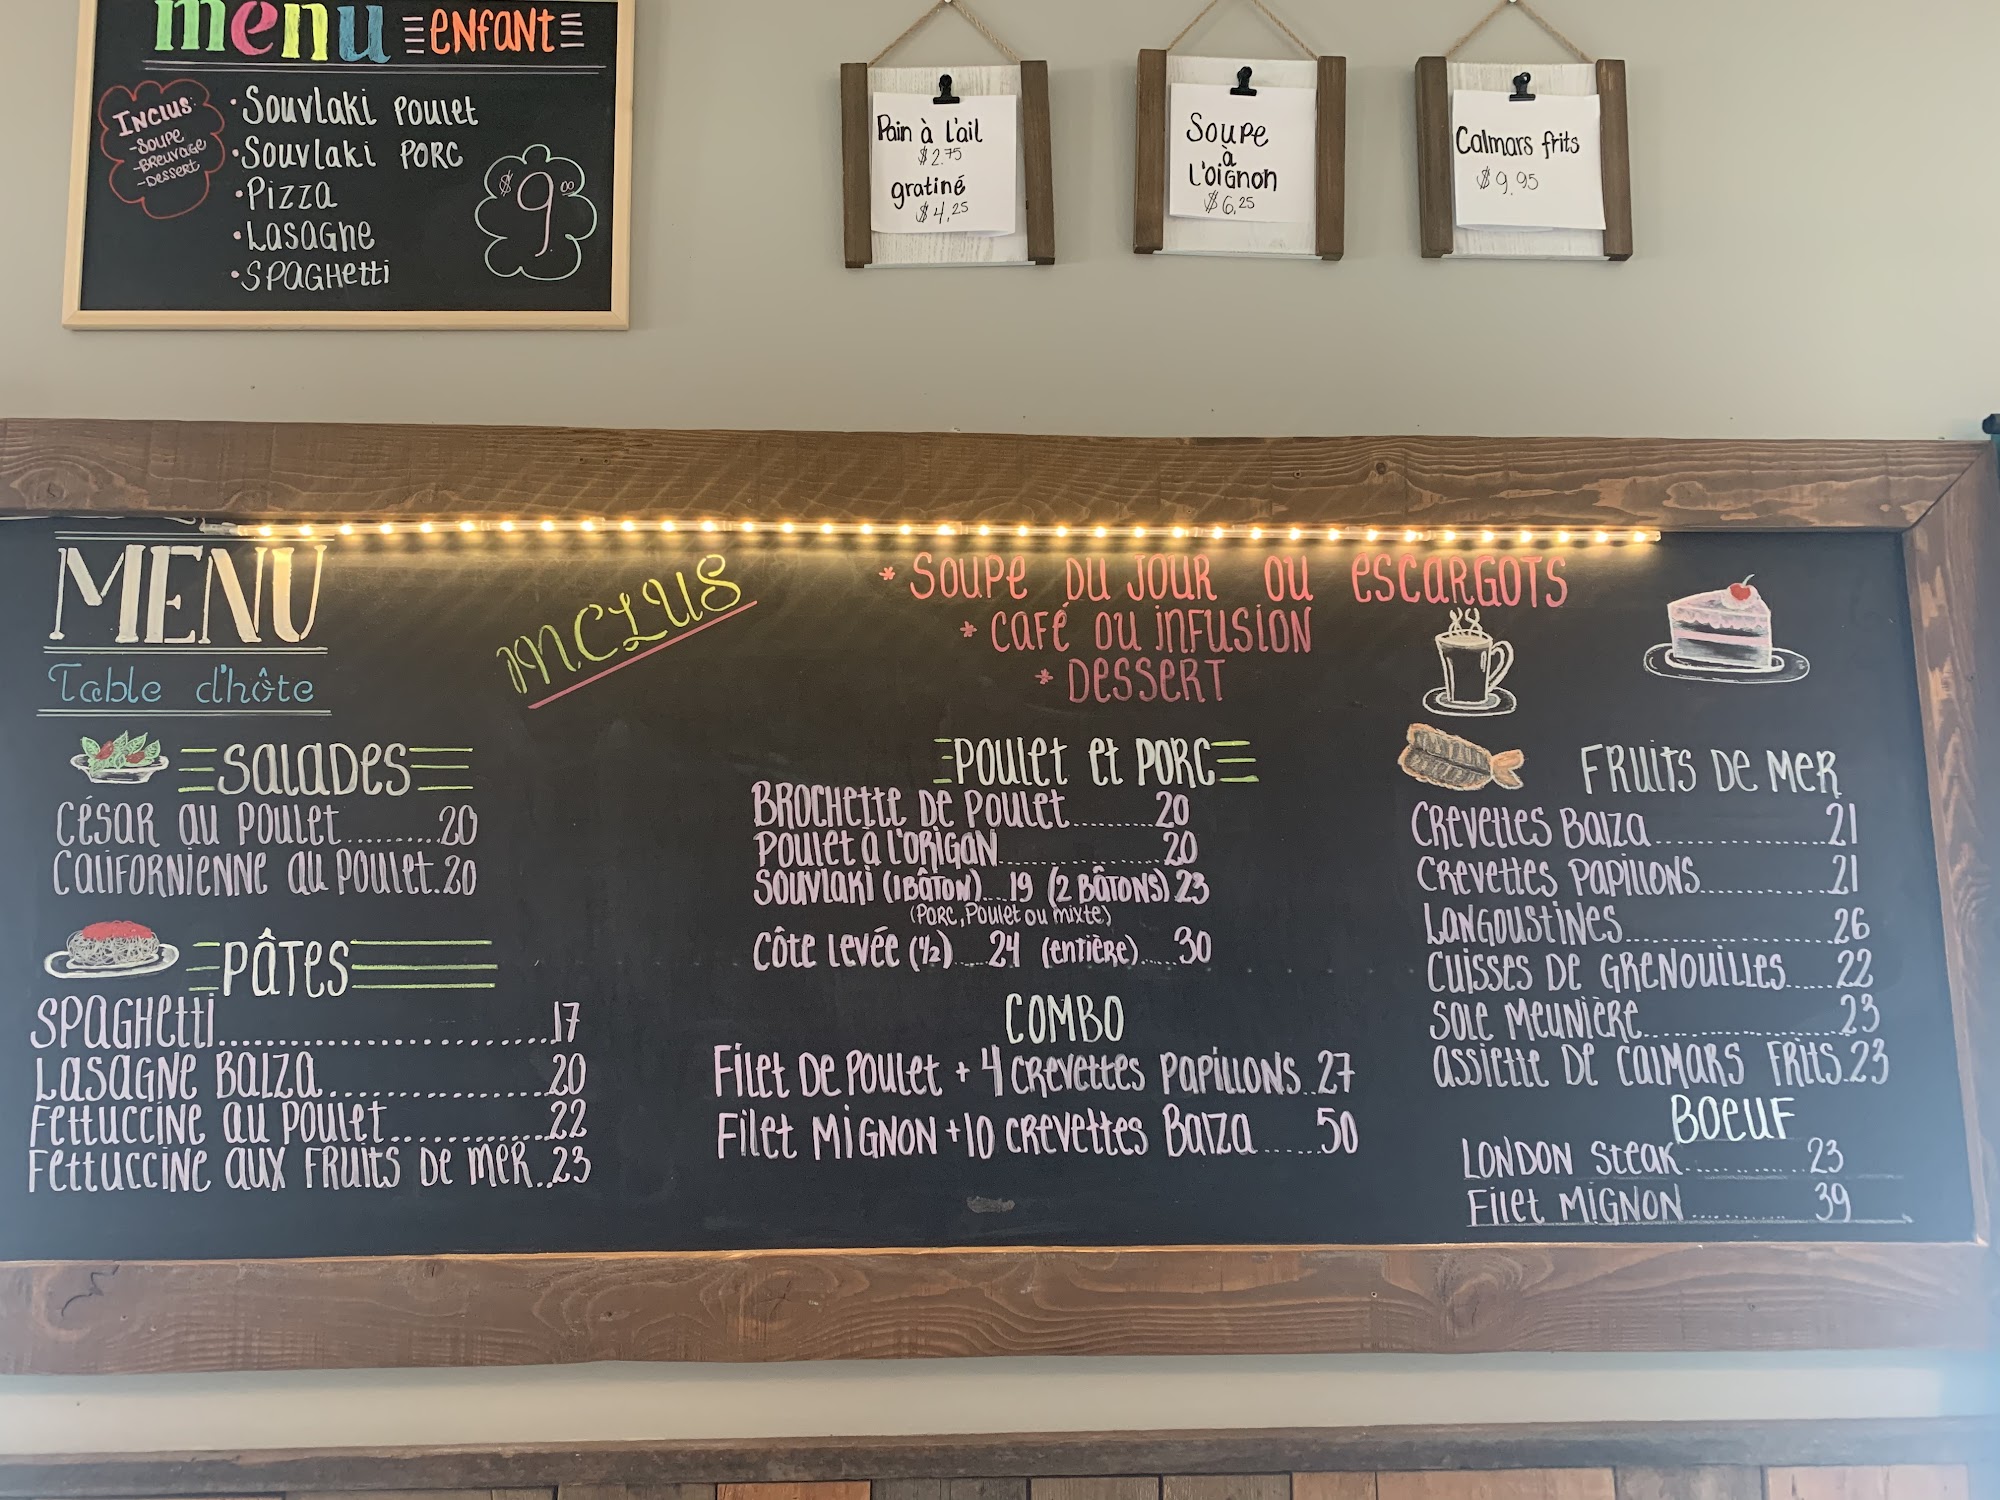 menu enfant
Inclus:
-Soupe
-Breuvage
-Dessert
• Souvlaki poulet
• Souvlaki porc
• Pizza
• Lasagne
• Spaghetti
$9.00
Pain à l'ail
$2.75
gratiné
$4,25
Soupe
à
l'oignon
$6,25
Calmars frits
$9.95
MENU
Table d'hôte
INCLUS
* SOUPE DU JOUR OU ESCARGOTS
* CAFÉ OU INFUSION
* DESSERT
SALADES
CÉSAR AU POULET..........20
CALIFORNIENNE AU POULET.20
PÂTES
SPAGHETTI..........................17
LASAGNE BAIZA.................20
FETTUCCINE AU POULET............22
FETTUCCINE AUX FRUITS DE MER..23
POULET ET PORC
BROCHETTE DE POULET.........20
POULET À L'ORIGAN................20
SOUVLAKI (1 BÂTON)....19 (2 BÂTONS).23
(PORC, POULET OU MIXTE)
CÔTE LEVÉE (1/2).....24 (ENTIÈRE).....30
COMBO
FILET DE POULET + 4 CREVETTES PAPILLONS..27
FILET MIGNON +10 CREVETTES BAIZA......50
FRUITS DE MER
CREVETTES BAIZA................21
CREVETTES PAPILLONS............21
LANGOUSTINES....................26
CUISSES DE GRENOUILLES.....22
SOLE MEUNIÈRE..................23
ASSIETTE DE CALMARS FRITS.23
BOEUF
LONDON STEAK............23
FILET MIGNON..........39